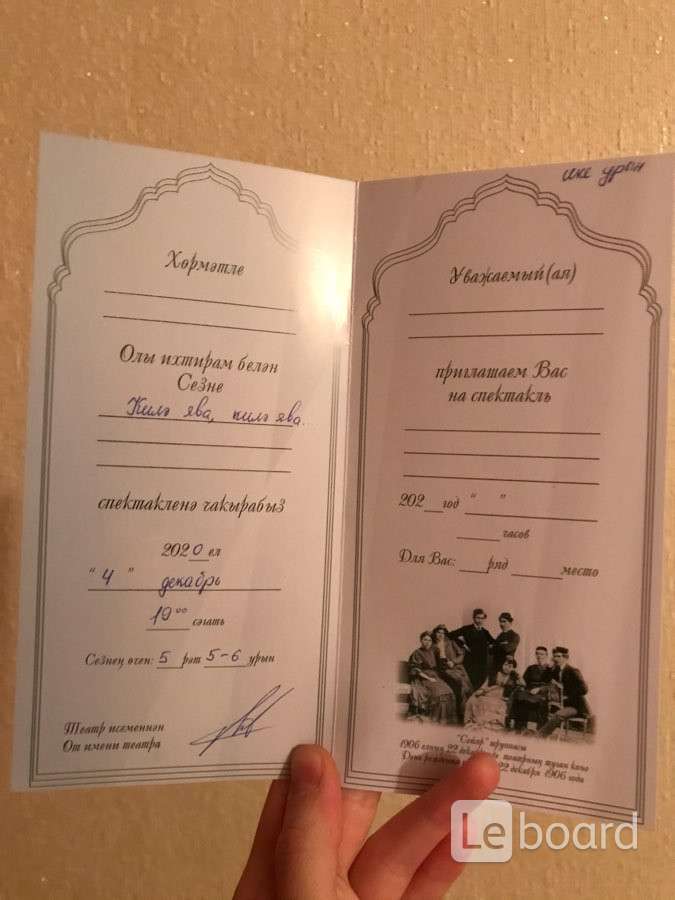 Хөрмәтле
Олы ихтирам белән
Сезне
Килә ява, килә ява...
спектакленә чакырабыз
2020 ел
"4" декабрь
19 00 сәгать
Сезнең өчен: 5 рәт 5-6 урын
Театр исеменнән
От имени театра
ике урын
Уважаемый(ая)
приглашаем Вас
на спектакль
202__год "__"
____ часов
Для Вас: ___ряд _____ место
"Сәйяр" труппасы
1906 елның 22 театрның туган көне
День рождения 22 декабря 1906 года
Leboard